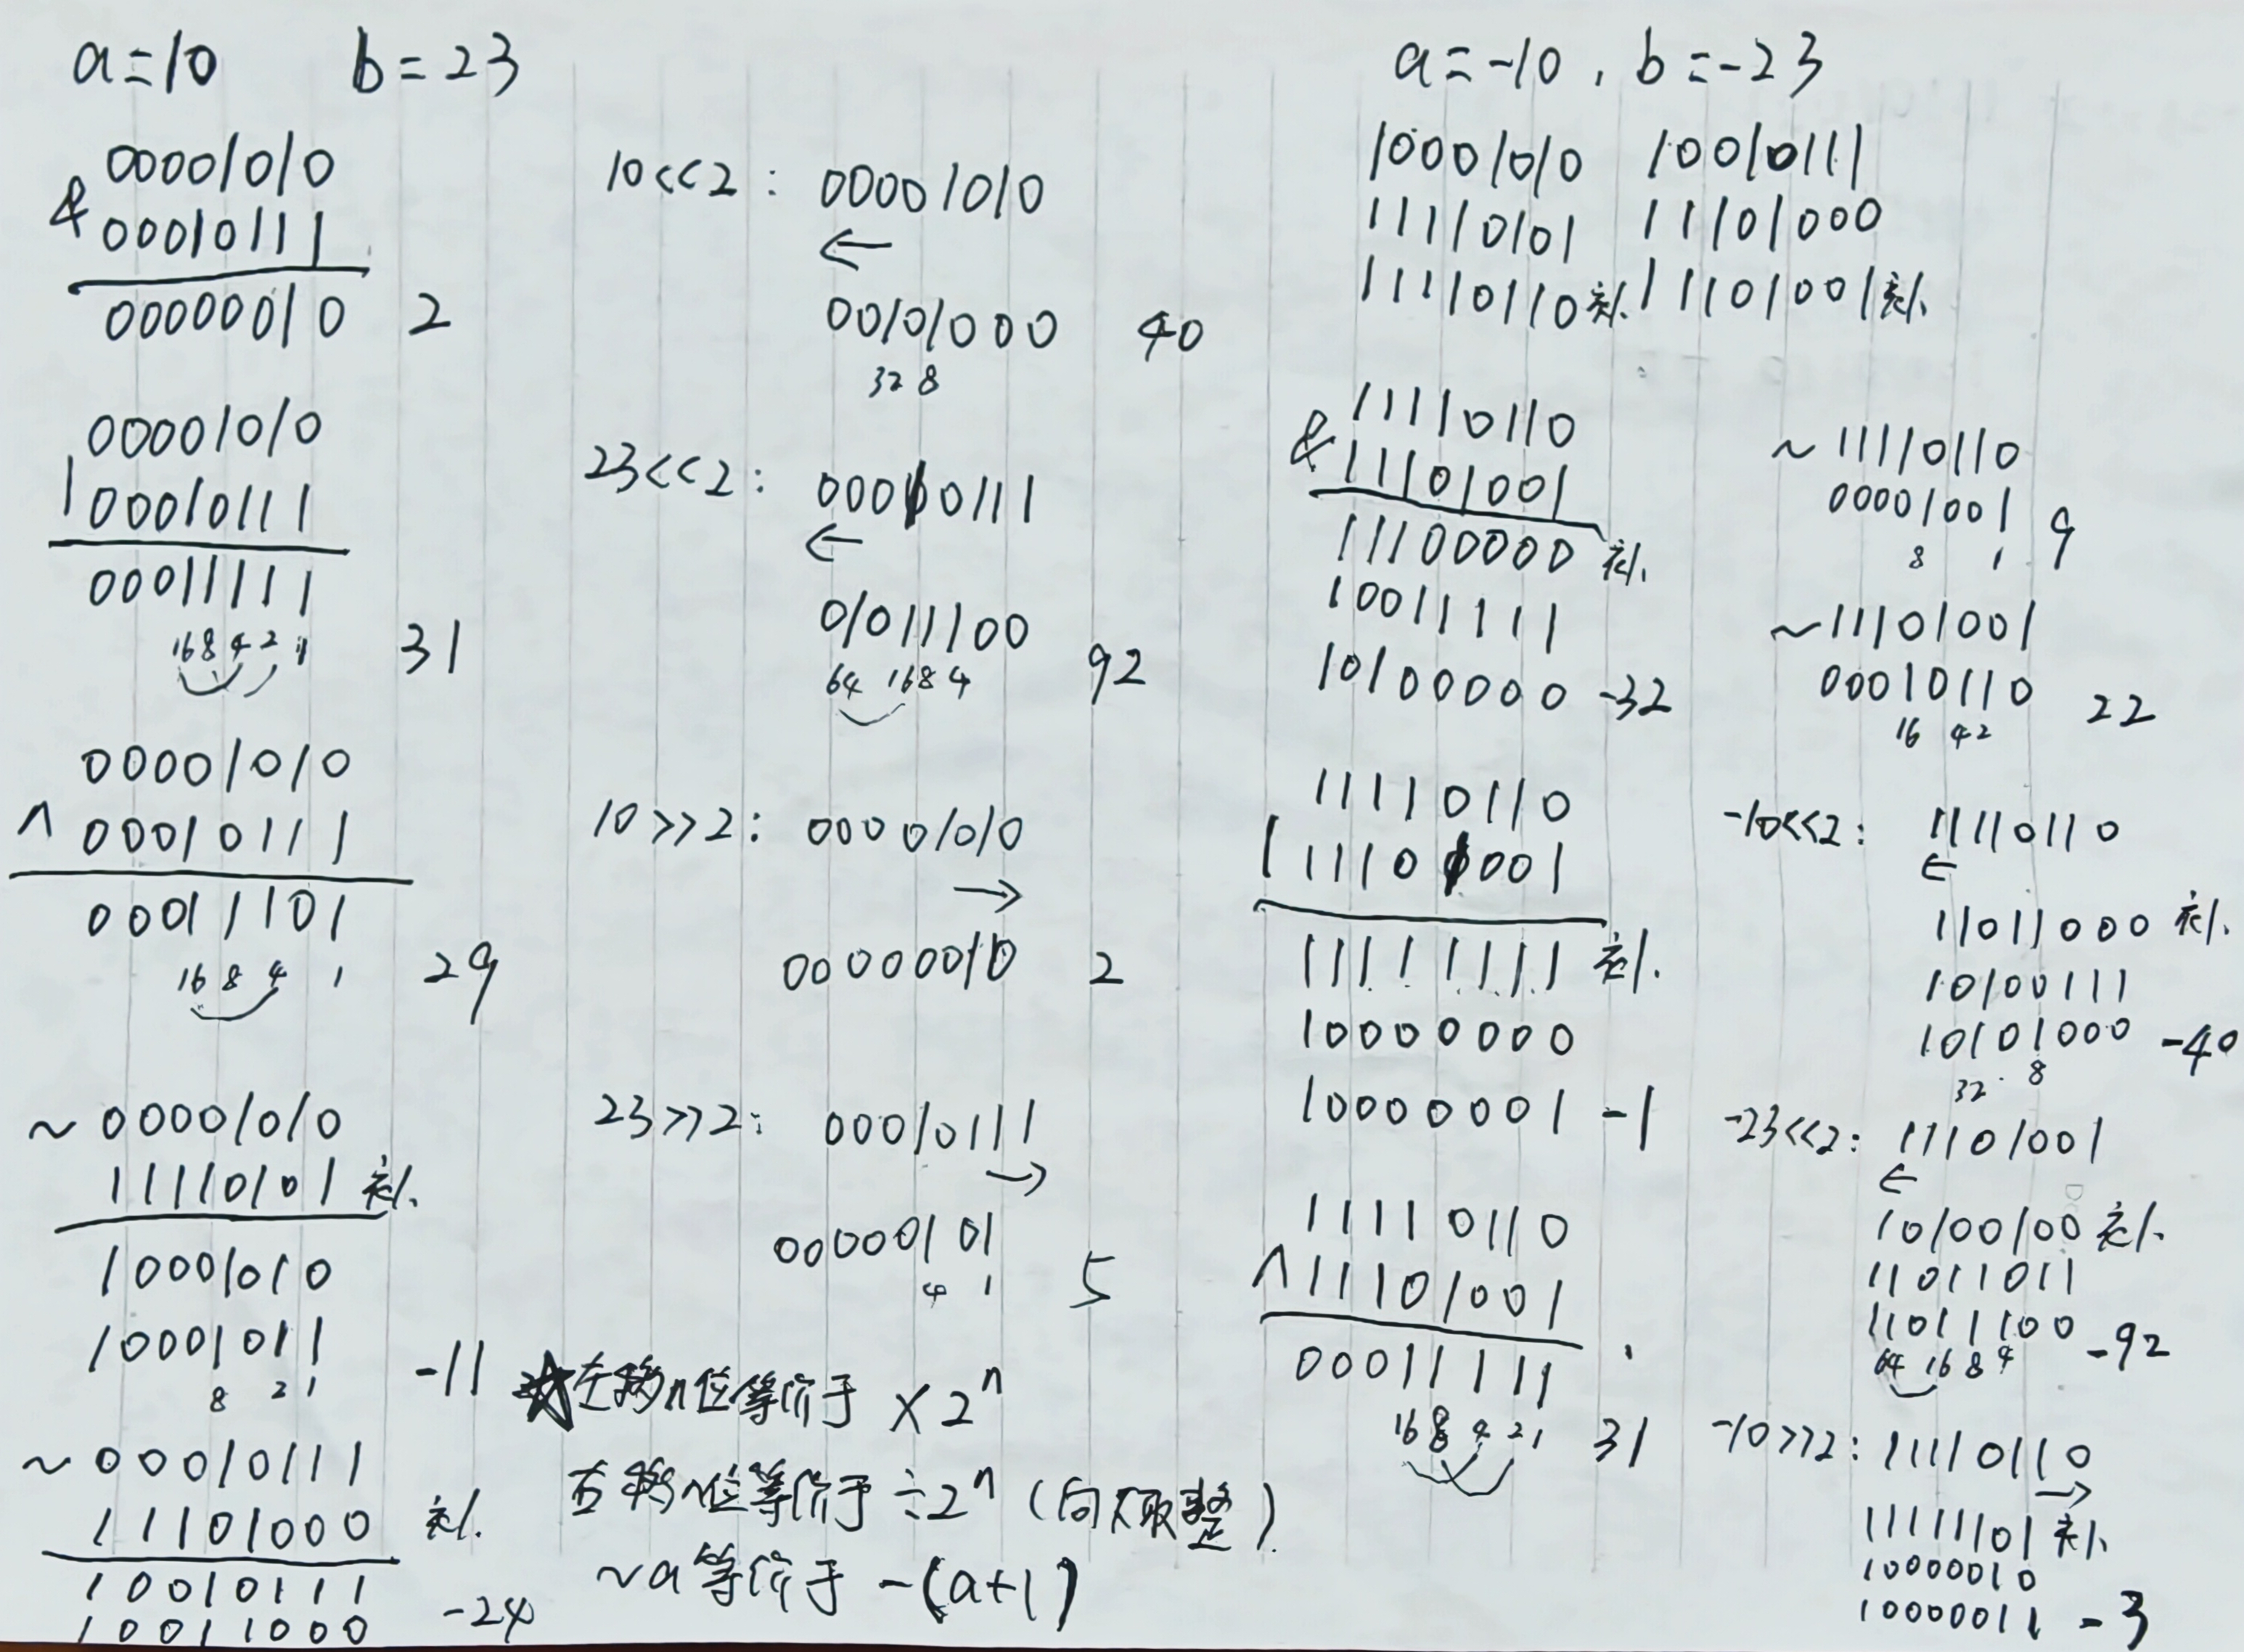 a=10 b=23
00001010
& 00010111
00000010 2
00001010
| 00010111
00011111
16 8 4 2 1 31
00001010
^ 00010111
00011101
16 8 4 1 29
~ 00001010
11110101 补
10001010
10001011 -11
8 2 1
~ 00010111
11101000 补
10010111
10011000 -24
10<<2: 00001010
←
00101000 40
32 8
23<<2: 00010111
←
01011100 92
64 16 8 4
10>>2: 00001010
→
00000010 2
23>>2: 00010111
→
00000101 5
4 1
☆左移n位等价于 ×2ⁿ
右移n位等价于 ÷2ⁿ (向下取整)
~a等价于 -(a+1)
a=-10, b=-23
10001010 10010111
11110101 11101000
11110110补 11101001补
11110110
& 11101001
11100000 补
10011111
10100000 -32
11110110
| 11101001
11111111 补
10000000
10000001 -1
11110110
^ 11101001
00011111
16 8 4 2 1 31
~ 11110110
00001001 9
8 1
~ 11101001
00010110 22
16 4 2
-10<<2: 11110110
←
11011000 补
10100111
10101000 -40
32 8
-23<<2: 11101001
←
10100100 补
11011011
11011100 -92
64 16 8 4
-10>>2: 11110110
→
11111101 补
10000010
10000011 -3